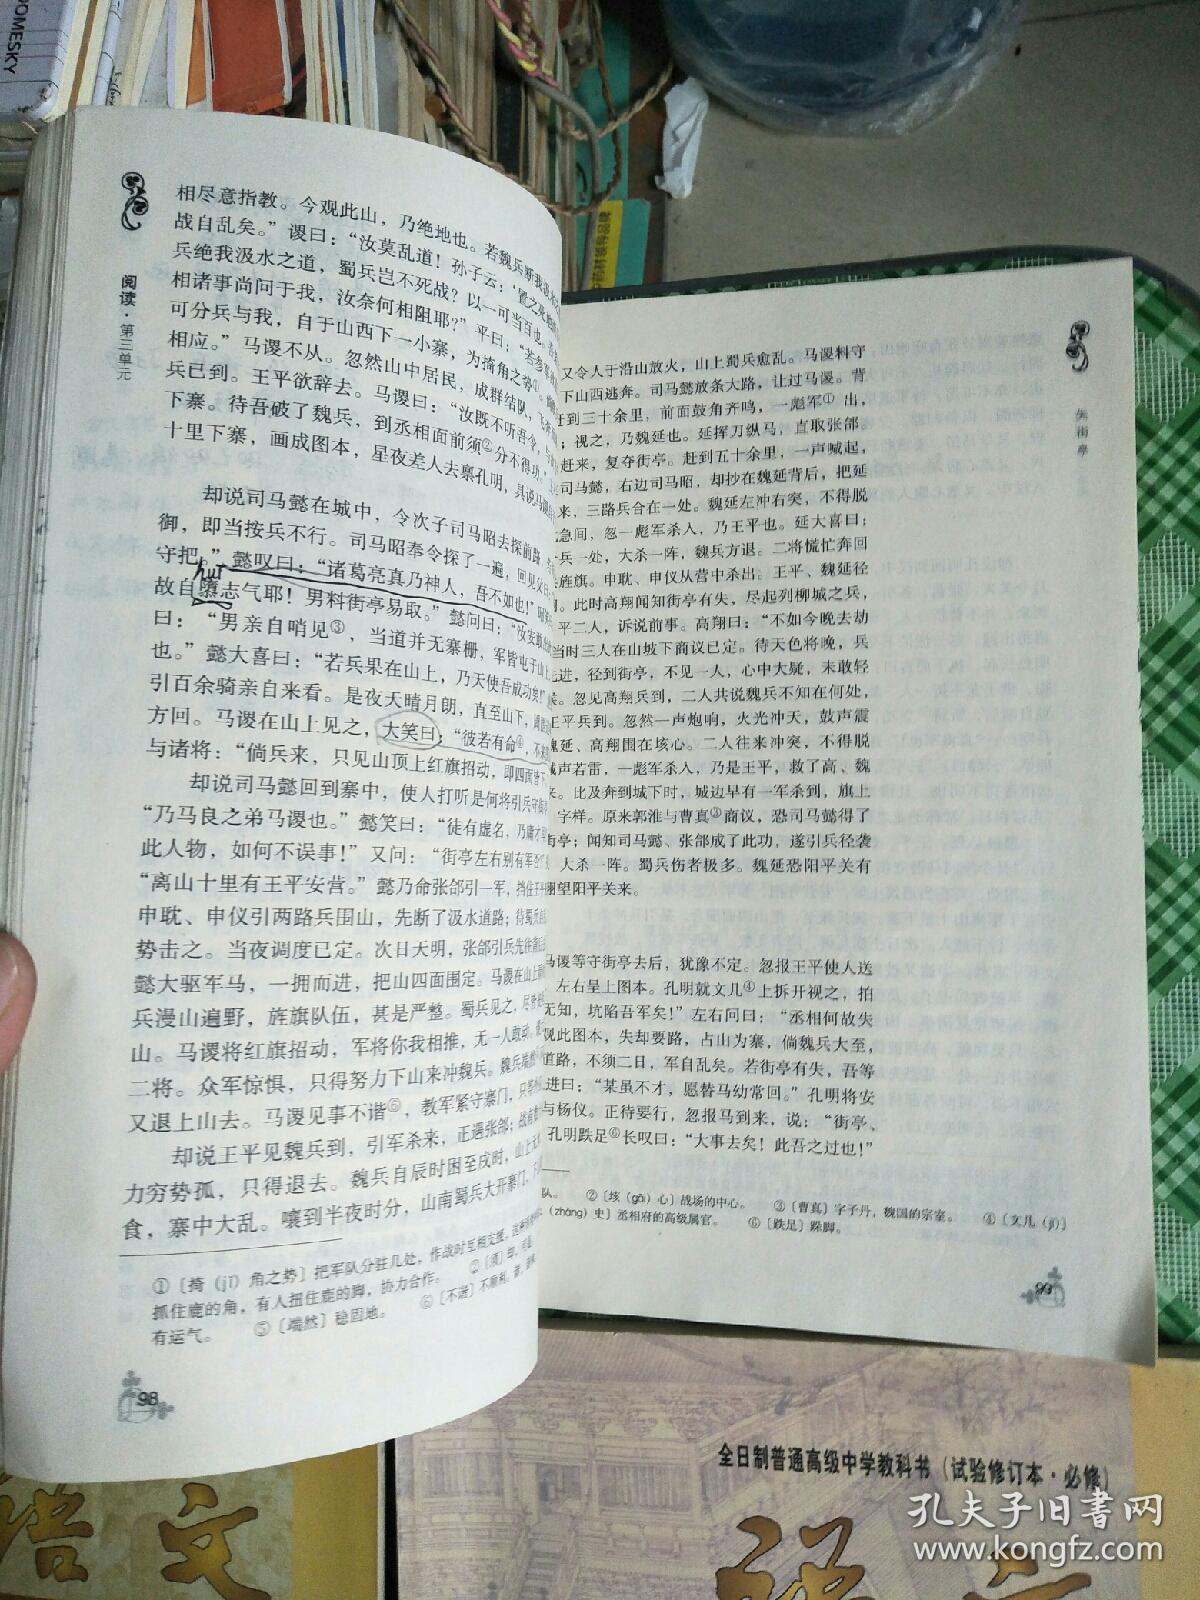 DOMESKY
阅读·第三单元
相尽意指教。今观此山，乃绝地也。若魏兵断我汲水
战自乱矣。”谡曰：“汝莫乱道！孙子云：‘置之死地
兵绝我汲水之道，蜀兵岂不死战？以一可当百也。
相诸事尚问于我，汝奈何相阻耶？”平曰：“若参军
可分兵与我，自于山西下一小寨，为掎角之势①。
相应。”马谡不从。忽然山中居民，成群结队，飞
兵已到。王平欲辞去。马谡曰：“汝既不听吾令，
下寨。待吾破了魏兵，到丞相面前须②分不得功。”
十里下寨，画成图本，星夜差人去禀孔明，具说
却说司马懿在城中，令次子司马昭去探前路
御，即当按兵不行。司马昭奉令探了一遍，回见父曰
守把。”懿叹曰：“诸葛亮真乃神人，吾不如也！”
huī
故自隳志气耶！男料街亭易取。”懿问曰：“汝安敢
曰：“男亲自哨见③，当道并无寨栅，军皆屯于山上
也。”懿大喜曰：“若兵果在山上，乃天使吾成功矣！”
引百余骑亲自来看。是夜天晴月朗，直至山下，
方回。马谡在山上见之，大笑曰：“彼若有命④，不来
与诸将：“倘兵来，只见山顶上红旗招动，即四面皆下
却说司马懿回到寨中，使人打听是何将引兵守
“乃马良之弟马谡也。”懿笑曰：“徒有虚名，乃庸才
此人物，如何不误事！”又问：“街亭左右别有军否
“离山十里有王平安营。”懿乃命张郃引一军，挡住王平
申耽、申仪引两路兵围山，先断了汲水道路；待蜀兵自
势击之。当夜调度已定。次日天明，张郃引兵先往
懿大驱军马，一拥而进，把山四面围定。马谡在山上
兵漫山遍野，旌旗队伍，甚是严整。蜀兵见之，尽皆
山。马谡将红旗招动，军将你我相推，无一人敢动。
二将。众军惊惧，只得努力下山来冲魏兵。魏兵端然
又退上山去。马谡见事不谐⑥，教军紧守寨门，只等
却说王平见魏兵到，引军杀来，正遇张郃；战
力穷势孤，只得退去。魏兵自辰时困至戌时，山上
食，寨中大乱。嚷到半夜时分，山南蜀兵大开寨门，下
①〔掎（jǐ）角之势〕把军队分驻几处，作战时互相支援。
抓住鹿的角，有人扭住鹿的脚，协力合作。 ②〔须〕却，
有运气。 ⑤〔端然〕稳固地。 ⑥〔不谐〕不顺利。
98
失街亭
又令人于沿山放火，山上蜀兵愈乱。马谡料守
下山西逃奔。司马懿放条大路，让过马谡。背
赶到三十余里，前面鼓角齐鸣，一彪军①出，
；视之，乃魏延也。延挥刀纵马，直取张郃
赶来，复夺街亭。赶到五十余里，一声喊起，
司马懿，右边司马昭，却抄在魏延背后，把延
来，三路兵合在一处。魏延左冲右突，不得脱
急间，忽一彪军杀入，乃王平也。延大喜曰：
兵一处，大杀一阵，魏兵方退。二将慌忙奔回
旌旗。申耽、申仪从营中杀出。王平、魏延径
。此时高翔闻知街亭有失，尽起列柳城之兵，
平二人，诉说前事。高翔曰：“不如今晚去劫
当时三人在山坡下商议已定。待天色将晚，兵
先进，径到街亭，不见一人，心中大疑，未敢轻
。忽见高翔兵到，二人共说魏兵不知在何处，
王平兵到。忽然一声炮响，火光冲天，鼓声震
魏延、高翔围在垓心。二人往来冲突，不得脱
喊声若雷，一彪军杀入，乃是王平，救了高、魏
来。比及奔到城下时，城边早有一军杀到，旗上
字样。原来郭淮与曹真③商议，恐司马懿得了
街亭；闻知司马懿、张郃成了此功，遂引兵径袭
大杀一阵。蜀兵伤者极多。魏延恐阳平关有
望阳平关来。
马谡等守街亭去后，犹豫不定。忽报王平使人送
，左右呈上图本。孔明就文几④上拆开视之，拍
无知，坑陷吾军矣！”左右问曰：“丞相何故失
观此图本，失却要路，占山为寨，倘魏兵大至，
道路，不须二日，军自乱矣。若街亭有失，吾等
进曰：“某虽不才，愿替马幼常回。”孔明将安
与杨仪。正待要行，忽报马到来，说：“街亭、
孔明跌足⑥长叹曰：“大事去矣！此吾之过也！”
队。 ②〔垓（gāi）心〕战场的中心。 ③〔曹真〕字子丹，魏国的宗室。 ④〔文几（jī）〕
（zhǎng）史〕丞相府的高级属官。 ⑥〔跌足〕跺脚。
99
全日制普通高级中学教科书（试验修订本·必修）
语文
语文
孔夫子旧书网
www.kongfz.com